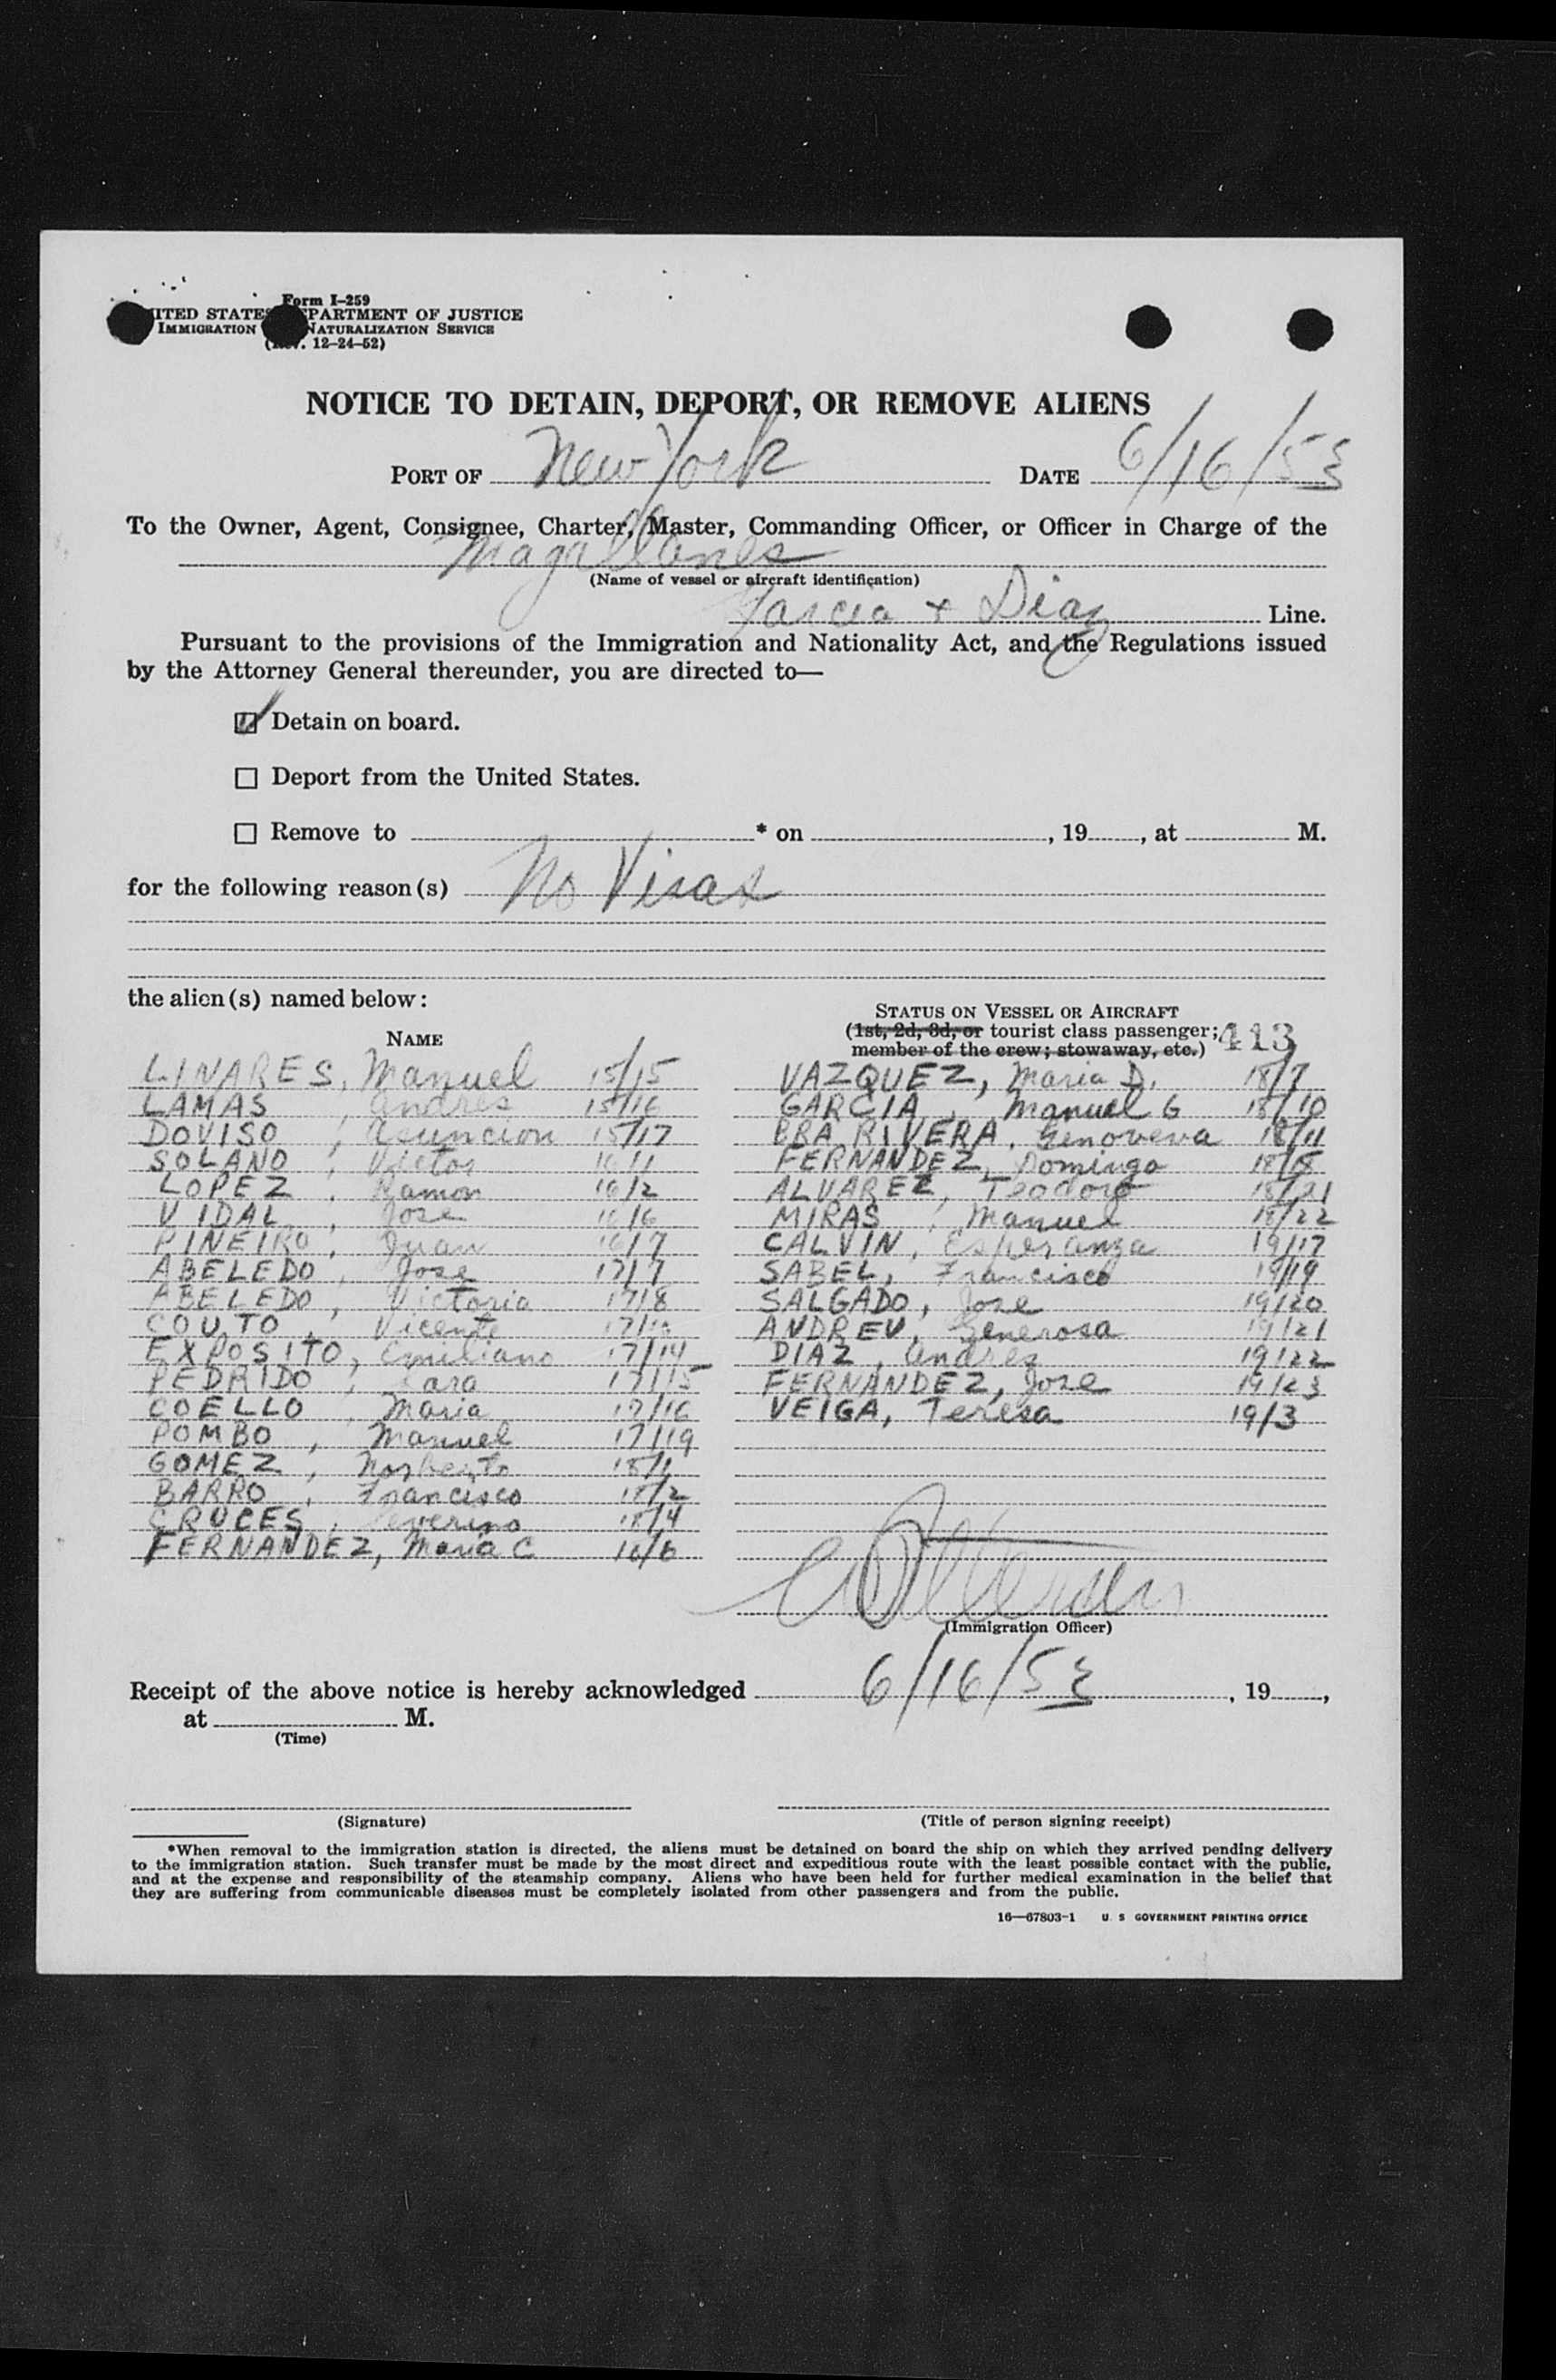 Form I-259
UNITED STATES DEPARTMENT OF JUSTICE
IMMIGRATION NATURALIZATION SERVICE
(Rev. 12-24-52)
NOTICE TO DETAIN, DEPORT, OR REMOVE ALIENS
PORT OF New York DATE 6/16/53
To the Owner, Agent, Consignee, Charter, Master, Commanding Officer, or Officer in Charge of the
Magallanes
(Name of vessel or aircraft identification)
Garcia + Diaz Line.
Pursuant to the provisions of the Immigration and Nationality Act, and the Regulations issued
by the Attorney General thereunder, you are directed to—
Detain on board.
Deport from the United States.
Remove to * on , 19 , at M.
for the following reason(s) No Visas
the alien(s) named below:
NAME
LINARES, Manuel 15/15
LAMAS, Andres 15/16
DOVISO, Asuncion 15/17
SOLANO, Victor 16/1
LOPEZ, Ramon 16/2
VIDAL, Jose 16/6
PINEIRO, Juan 16/7
ABELEDO, Jose 17/7
ABELEDO, Victoria 17/8
COUTO, Vicente 17/
EXPOSITO, Emiliano 17/14
PEDRIDO, 17/15
COELLO, Maria 17/16
POMBO, Manuel 17/19
GOMEZ, Norberto 18/1
BARRO, Francisco 18/2
CRUCES, Severino 18/4
FERNANDEZ, Maria C 16/6
STATUS ON VESSEL OR AIRCRAFT
(1st, 2d, 3d, or tourist class passenger; 413
member of the crew; stowaway, etc.)
VAZQUEZ, Maria D. 18/7
GARCIA, Manuel G 18/10
RIVERA, Genoveva 18/11
FERNANDEZ, Domingo 18/18
ALVAREZ, Teodoro 18/21
MIRAS, Manuel 18/22
CALVIN, Esperanza 19/17
SABEL, Francisco 19/19
SALGADO, Jose 19/20
ANDREU, Generosa 19/21
DIAZ, Andres 19/22
FERNANDEZ, Jose 19/23
VEIGA, Teresa 19/3
(Immigration Officer)
Receipt of the above notice is hereby acknowledged 6/16/53 , 19 ,
at M.
(Time)
(Signature)
(Title of person signing receipt)
*When removal to the immigration station is directed, the aliens must be detained on board the ship on which they arrived pending delivery
to the immigration station. Such transfer must be made by the most direct and expeditious route with the least possible contact with the public,
and at the expense and responsibility of the steamship company. Aliens who have been held for further medical examination in the belief that
they are suffering from communicable diseases must be completely isolated from other passengers and from the public.
16—67803-1 U. S GOVERNMENT PRINTING OFFICE